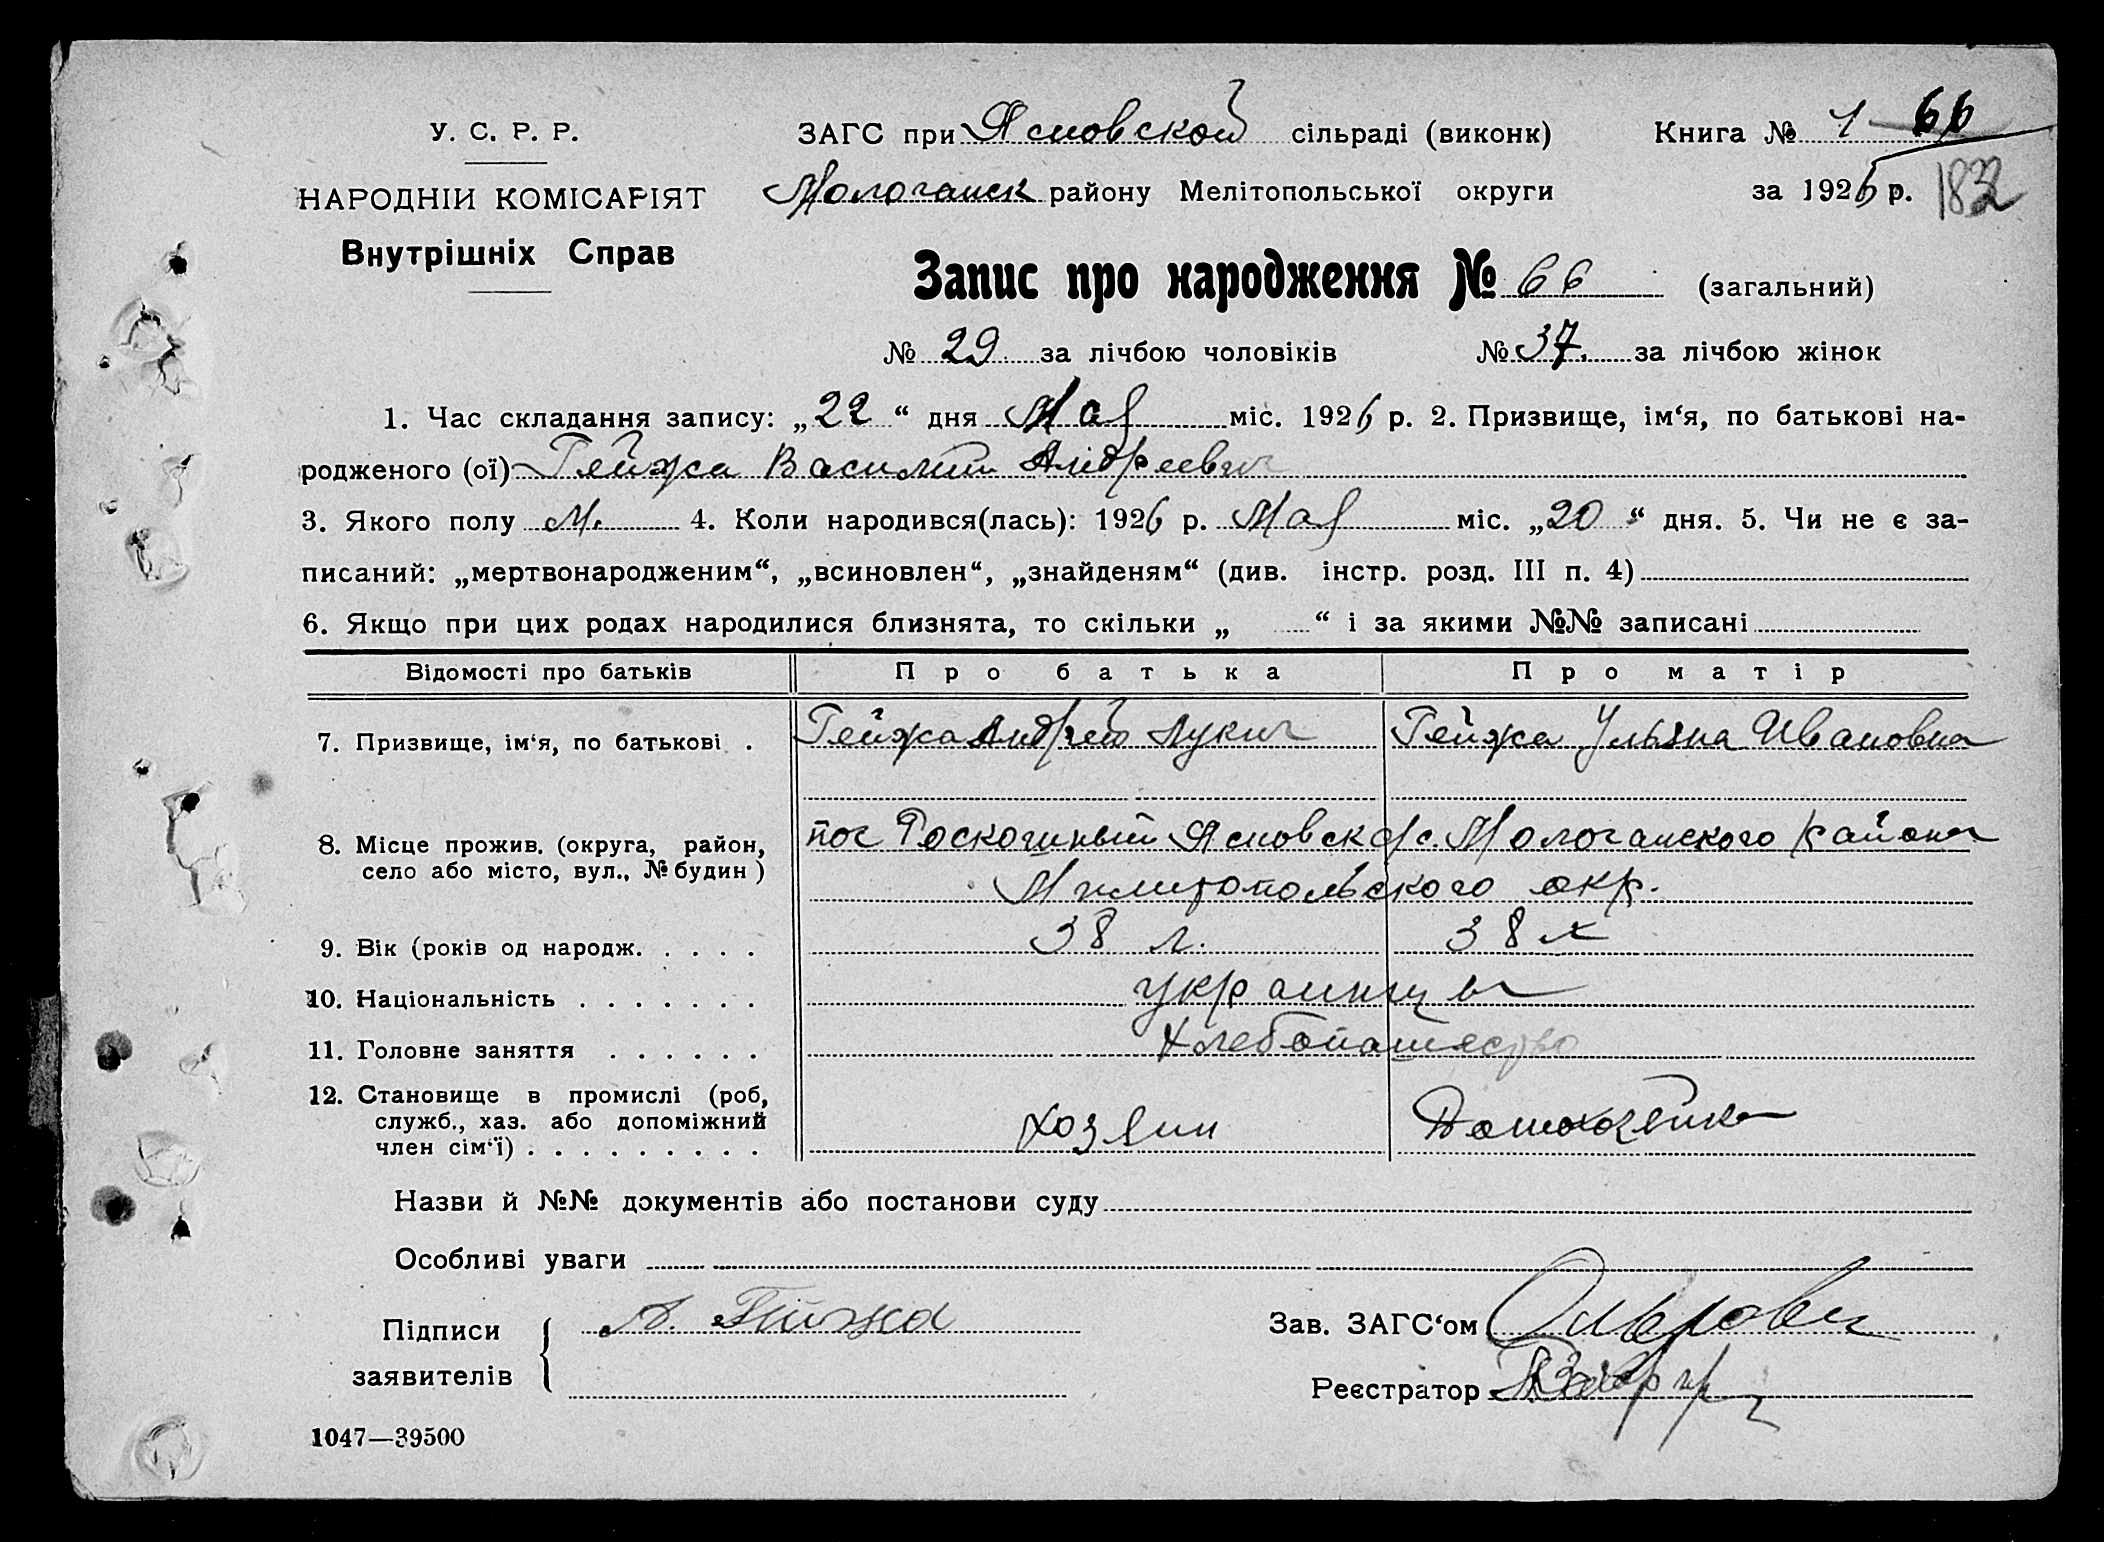 У. С. Р. Р.
НАРОДНІЙ КОМІСАРІЯТ
Внутрішніх Справ
ЗАГС при Ясновской сільраді (виконк)
Молочанск району Мелітопольської округи
Книга № 1 66
за 1926 р. 1832
Запис про народження № 66 (загальний)
№ 29 за лічбою чоловіків № 37. за лічбою жінок
1. Час складання запису: „22“ дня Мая міс. 1926 р. 2. Призвище, ім‘я, по батькові на-
родженого (ої) Гейжа Василий Андреевич
3. Якого полу М. 4. Коли народився(лась): 1926 р. Мая міс. „20“ дня. 5. Чи не є за-
писаний: „мертвонародженим“, „всиновлен“, „знайденям“ (див. інстр. розд. III п. 4)
6. Якщо при цих родах народилися близнята, то скільки „ “ і за якими №№ записані
Відомості про батьків Про батька Про матір
7. Призвище, ім‘я, по батькові . Гейжа Андрей Лукич Гейжа Ульяна Ивановна
8. Місце прожив. (округа, район, пос Роскошный Ясновск с/с. Молочанского района
село або місто, вул., № будин) Мелитопольского окр.
9. Вік (років од народж. . . . . 38 л. 38 л
10. Національність . . . . . . . украинцы
11. Головне заняття . . . . . . Хлебопашество
12. Становище в промислі (роб,
служб., хаз. або допоміжний Хозяин Домохозяйка
член сім‘ї) . . . . . . . . .
Назви й №№ документів або постанови суду
Особливі уваги
Підписи А. Гейжа
заявителів
Зав. ЗАГС‘ом
Реєстратор
1047—39500